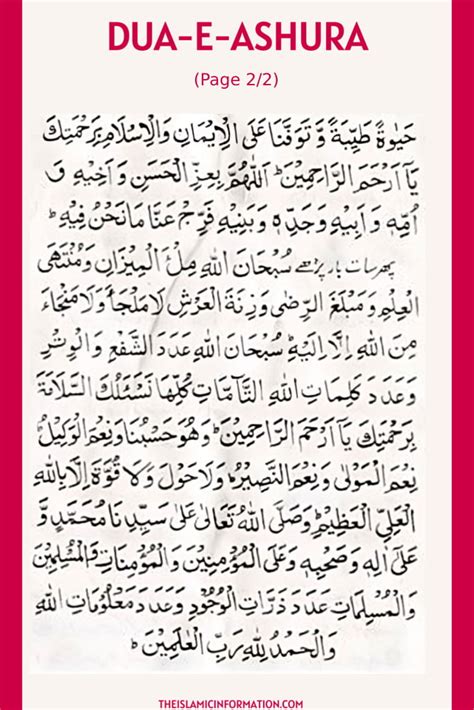 DUA-E-ASHURA
(Page 2/2)
حَيٰوةً طَيِّبَةً وَّتَوَفَّنَا عَلَى الْاِيْمَانِ وَالْاِسْلَامِ بِرَحْمَتِكَ
يَآ اَرْحَمَ الرَّاحِمِيْنَ ؕ اَللّٰهُمَّ بِعِزِّ الْحَسَنِ وَاَخِيْهِ وَ
اُمِّهٖ وَاَبِيْهِ وَجَدِّهٖ وَبَنِيْهِ فَرِّجْ عَنَّا مَا نَحْنُ فِيْهِ ؕ
پھر سات بار پڑھے سُبْحَانَ اللهِ مِلْءَ الْمِيْزَانِ وَمُنْتَهَى
الْعِلْمِ وَمَبْلَغَ الرِّضٰى وَزِنَةَ الْعَرْشِ لَا مَلْجَأَ وَلَا مَنْجَاءَ
مِنَ اللهِ اِلَّا اِلَيْهِ ؕ سُبْحَانَ اللهِ عَدَدَ الشَّفْعِ وَالْوِتْرِ
وَعَدَدَ كَلِمَاتِ اللهِ التَّآمَّاتِ كُلِّهَا نَسْئَلُكَ السَّلَامَةَ
بِرَحْمَتِكَ يَآ اَرْحَمَ الرَّاحِمِيْنَ ؕ وَهُوَ حَسْبُنَا وَنِعْمَ الْوَكِيْلُ ؕ
نِعْمَ الْمَوْلٰى وَنِعْمَ النَّصِيْرُ ؕ وَلَا حَوْلَ وَلَا قُوَّةَ اِلَّا بِاللهِ
الْعَلِيِّ الْعَظِيْمِ ؕ وَصَلَّى اللهُ تَعَالٰى عَلٰى سَيِّدِنَا مُحَمَّدٍ وَّ
عَلٰٓى اٰلِهٖ وَصَحْبِهٖ وَعَلَى الْمُؤْمِنِيْنَ وَالْمُؤْمِنَاتِ وَالْمُسْلِمِيْنَ
وَالْمُسْلِمَاتِ عَدَدَ ذَرَّاتِ الْوُجُوْدِ وَعَدَدَ مَعْلُوْمَاتِ اللهِ
وَالْحَمْدُ لِلّٰهِ رَبِّ الْعٰلَمِيْنَ ؕ
THEISLAMICINFORMATION.COM